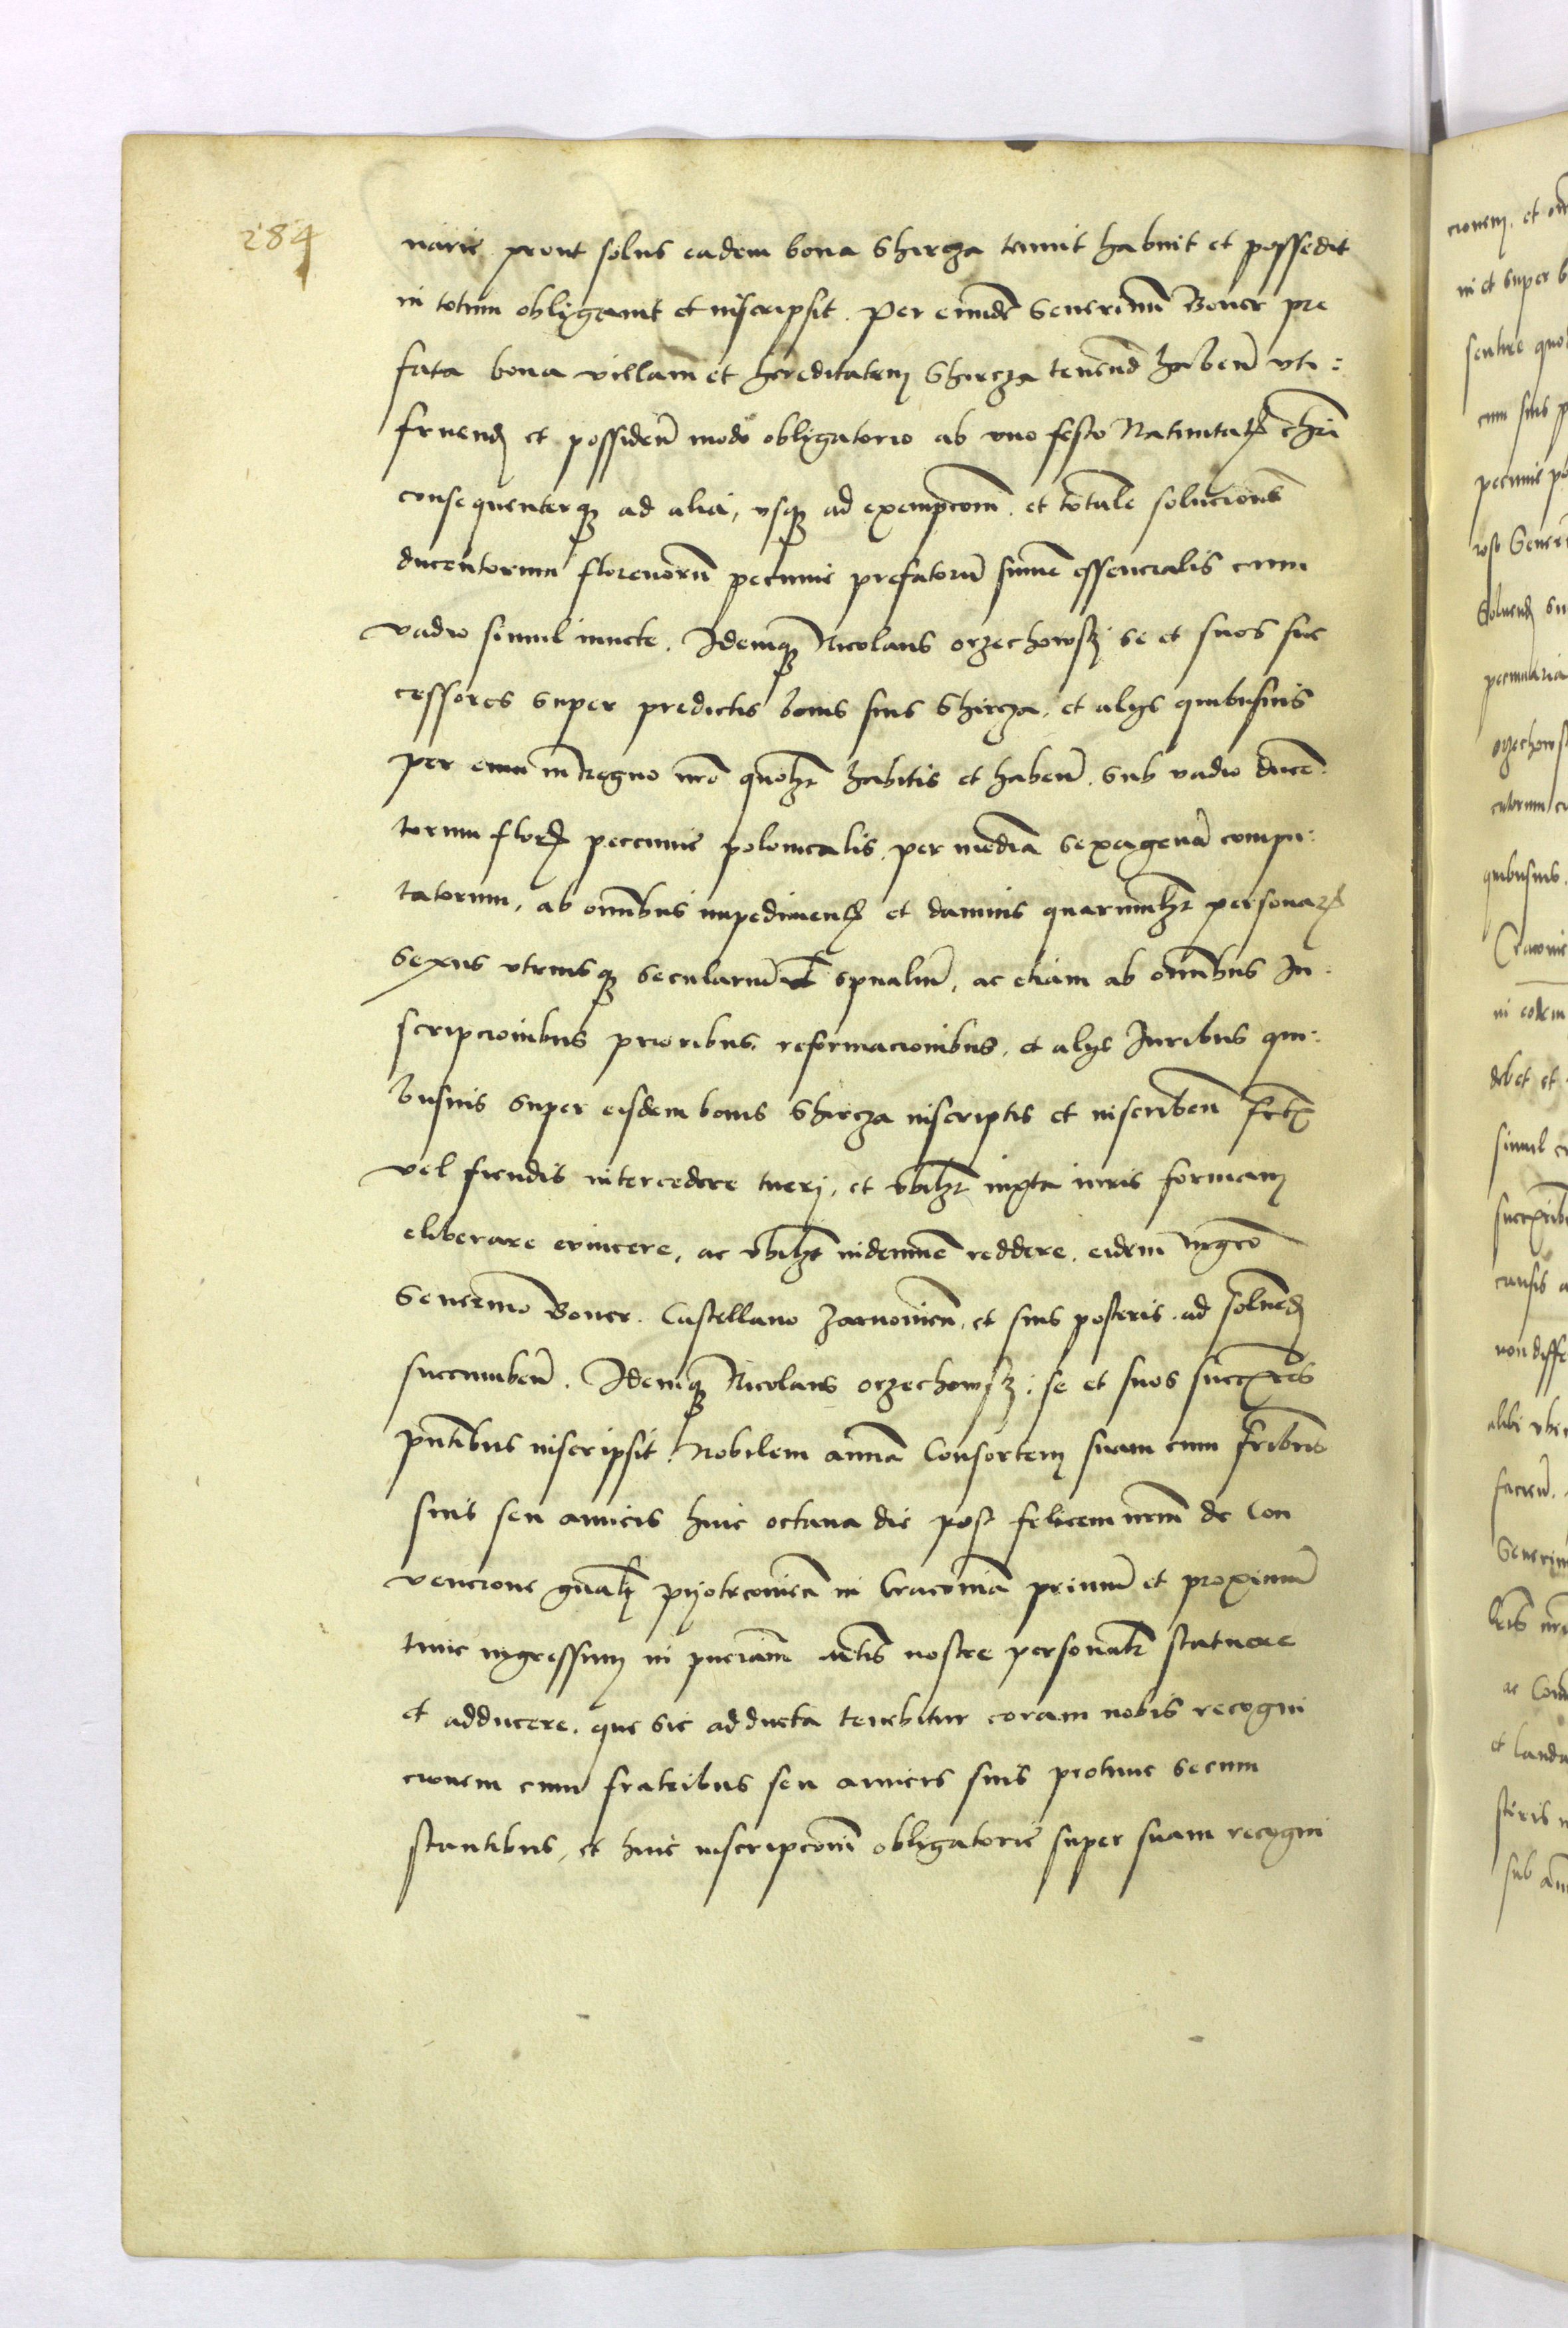 284
narie pront solus eadem bona Sbircza tenuit habuit et possedit
in totum obligauit et inscripsit. Per eundẽ Seuerinũ Boner pre
fata bona villam et hereditatem Sbircza tenend habeñ vti:
fruend et possideñ modo obligatorio ab vno festo Natiuitatis chri
consequenterqz ad alia, vsqz ad exempcom̃. et totale soluciones
ducentorum florenorũ pecunie prefatorũ sum̃e essencialis cum
vadio simul iuncte. Idemqz Nicolaus orzechowskj se et suos suc
cessores super predictis bonis suis Sbircza, et alijs quibusuis
per eum in Regno nr̃o quolibet habitis et habeñ. sub vadio ducen
torum floren pecunie polonicalis. per mediã sexagenã compu:
tatorum, ab om̃ibus impedimentis et damnis quarumlibet personarum
Sexus vtriusqz secularium et spũaliũ, ac etiam ab om̃ibus In:
scripcionibus prioribus, reformacionibus, et alijs Iuribus qui:
busuis super eisdem bonis Sbircza inscriptis et inscribeñ fact
vel fiendis intercedere tuerj, et vbilibet iuxta iuris formam
eliberare euincere, ac vbilibet indemnẽ reddere. eidem mgco
Seuerino Boner. Castellano Zarnouieñ. et suis posteris. ad soluend
succumbeñ. Idemqz Nicolaus orzechowskj. se et suos succres
pñtibus inscripsit, Nobilem annã Consortem suam cum fribus
suis seu amicis huic octaua die post felicem nrm̃ de Con
uencione gñali pyotrcouieñ in Cracouiã primũ et proximũ
tunc ingressum in pñciam̃ Mtis nostre personalr statuere
et adducere. que sic adducta tenebitur coram nobis recogni
cionem cum fratribus seu amicis suis protunc secum
stantibus, et huic inscripcioni obligatorie super suam recogni
cionem. et
ni et super
sentire
cum suis
pecunie
Soluend
pecuniaria
orzechows
quibusuis
in eodem
debet et
simul
causis
non diffe
alibi vbi
Seuerin
ac Con
et landu
steris
sub